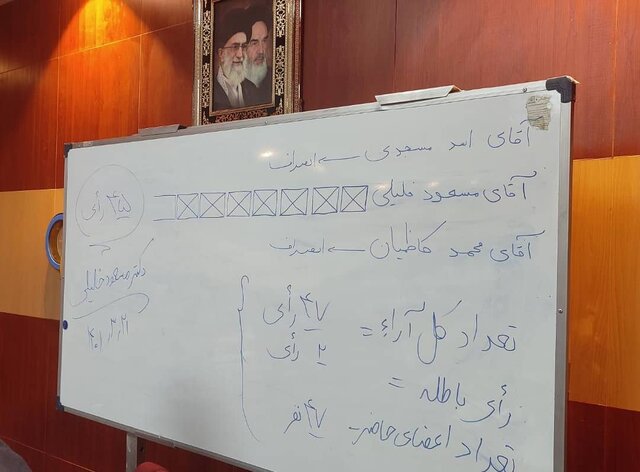 آقای اسد مسعودی ← انصراف
آقای مسعود خلیلی
آقای محمد کاظمیان ← انصراف
تعداد کل آراء = ۴۷ رأی
رأی باطله = ۲ رأی
تعداد اعضای حاضر - ۴۷ نفر
۴۵ رأی
دکتر مسعود خلیلی
۴۰۱٫۳٫۲۱